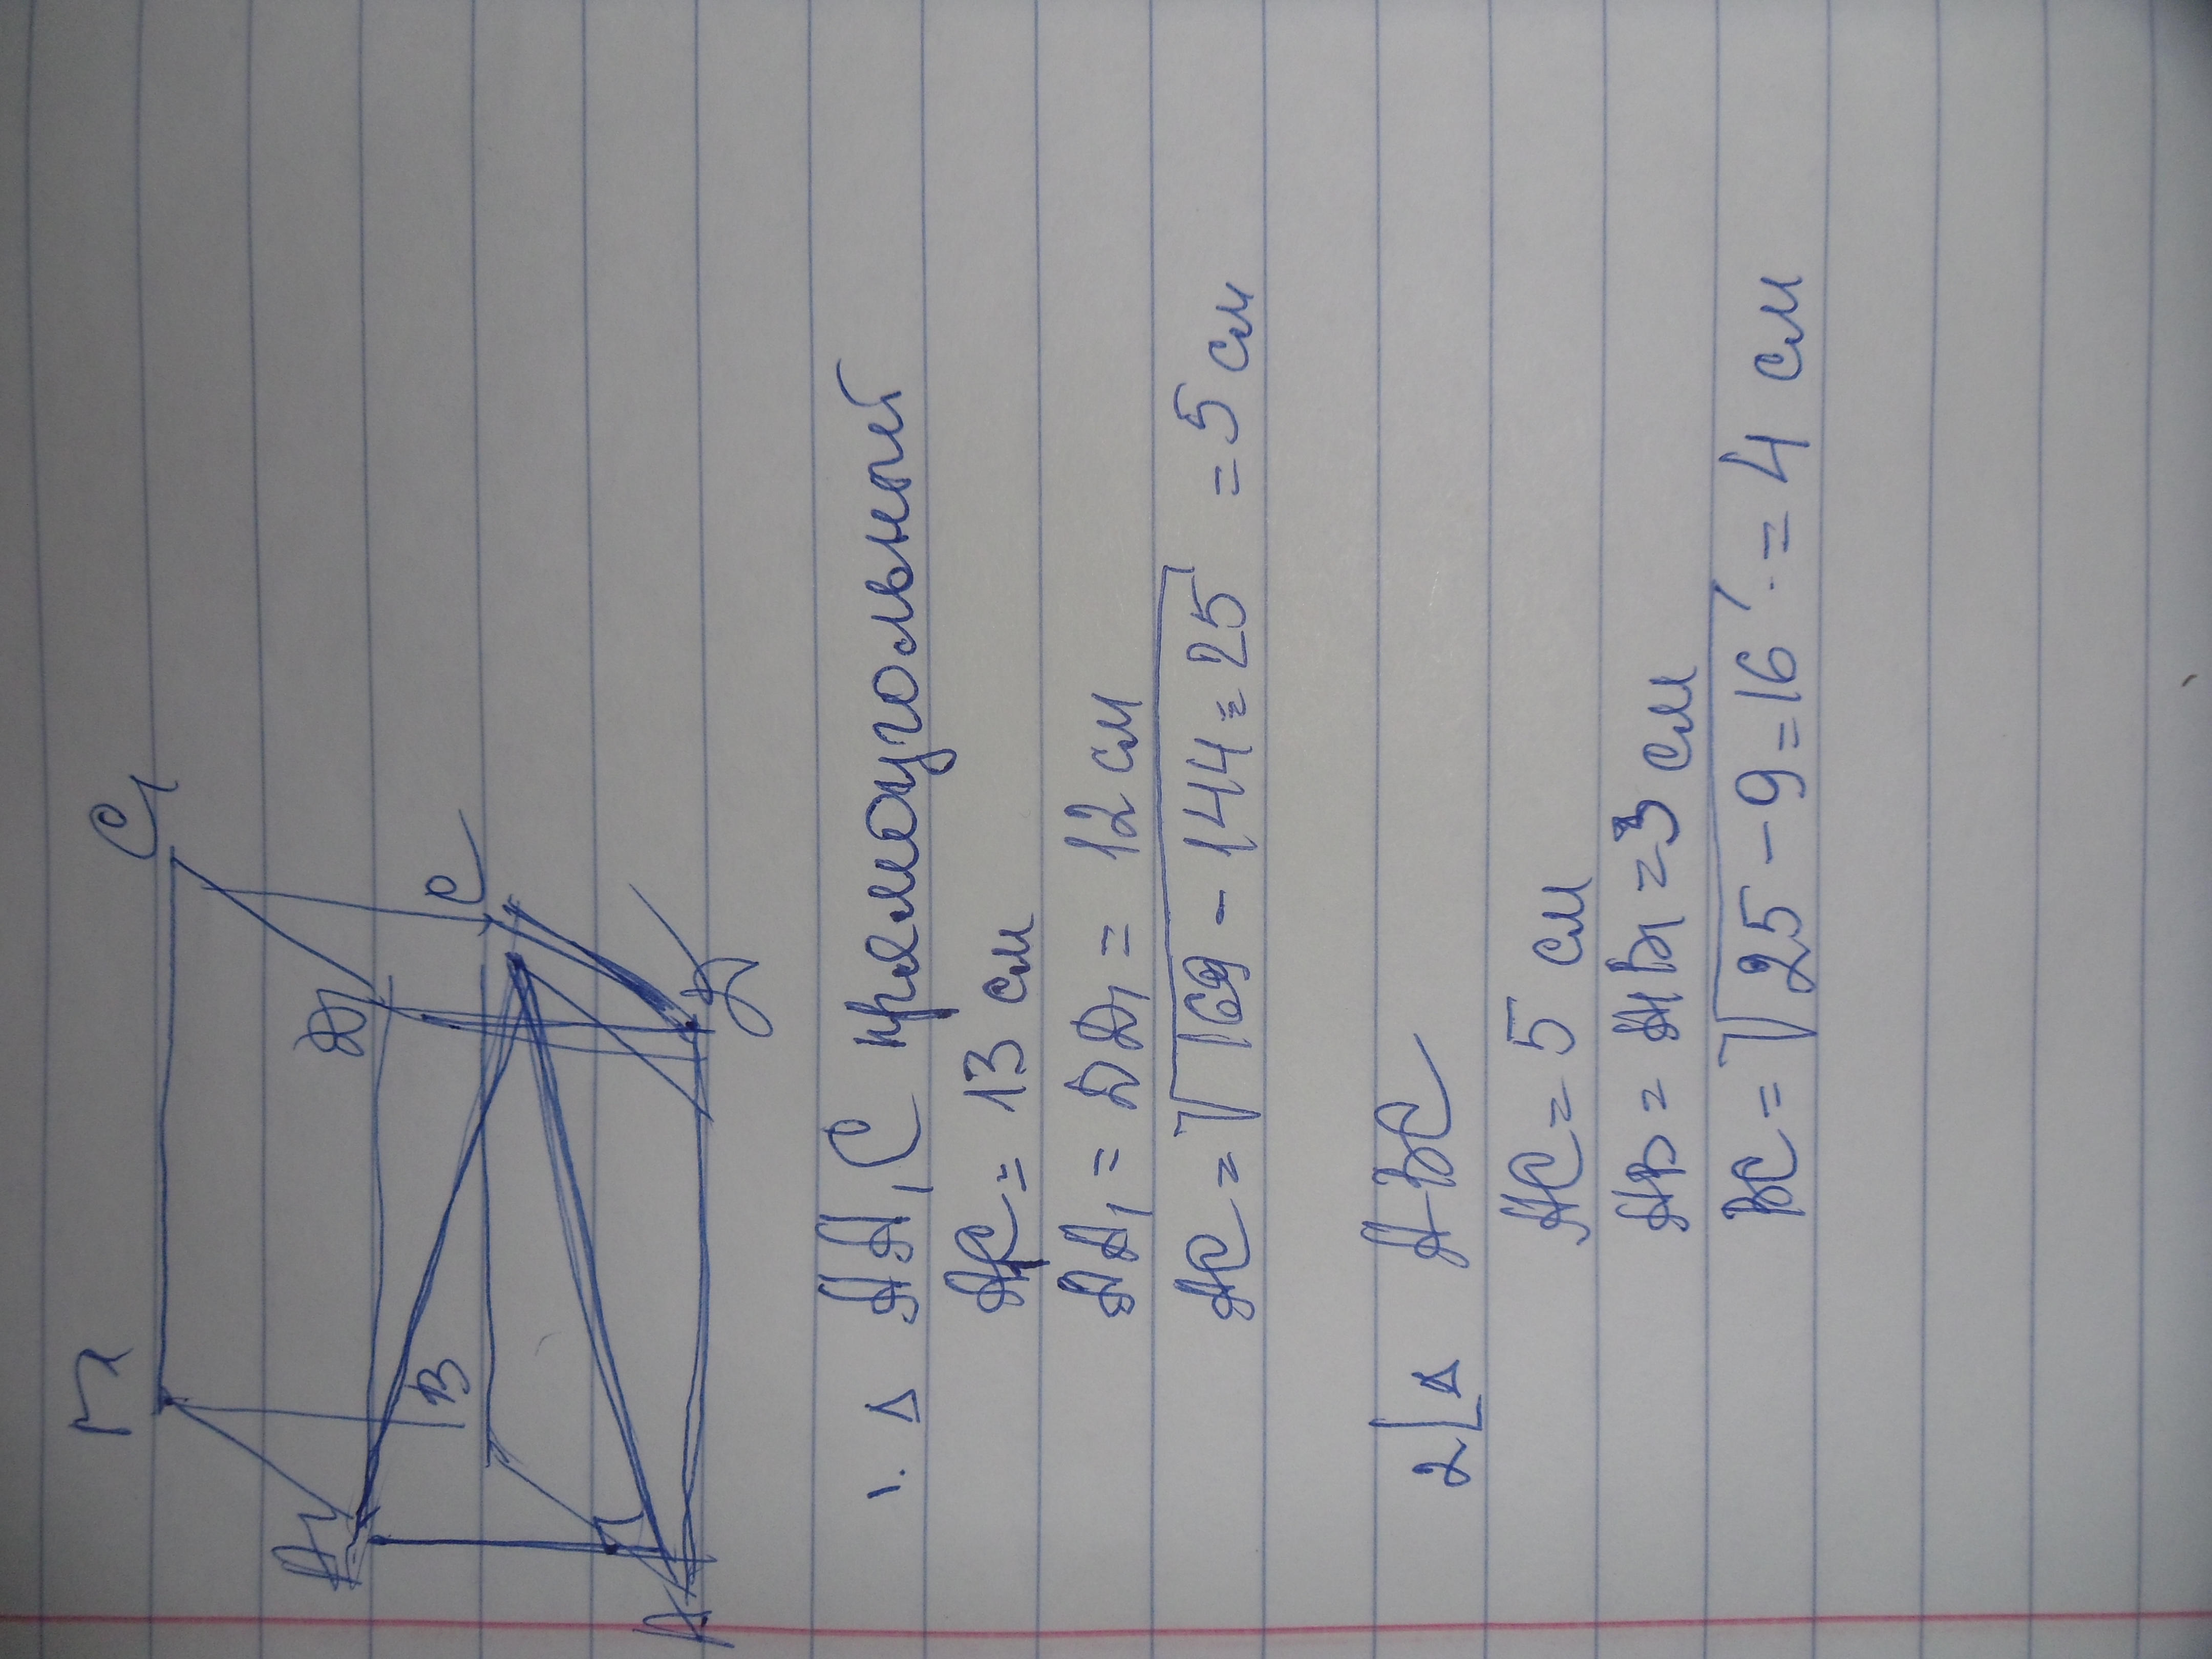 М C1
A1 D1
B C
A D
1. Δ AA1C прямоугольный
A1C = 13 см
AA1 = DD1 = 12 см
AC = √169 - 144 = 25 = 5 см
2 Δ ABC
AC = 5 см
AB = A1B1 = 3 см
BC = √25 - 9 = 16 = 4 см